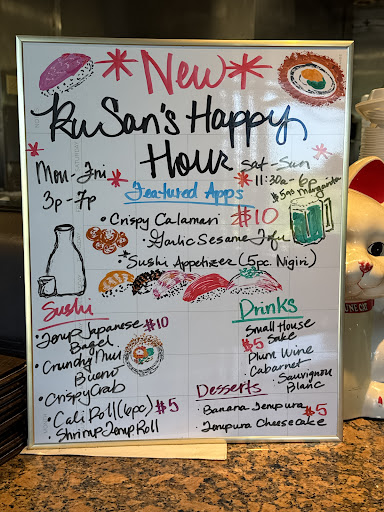 *New*
RuSan's Happy
Hour
Mon-Fri
3p-7p
Sat-Sun
11:30a-6p
$5.00 margarita
Featured Apps
• Crispy Calamari $10
• Garlic Sesame Tofu
• Sushi Appetizer (5pc. Nigiri)
Sushi
• Temp Japanese $10
Bagel
• Crunchy Nuu
Bueno
• Crispy Crab
• Cali Roll (6pc) $5
• Shrimp Temp Roll
Drinks
Small House
$5 Sake
Plum Wine
Cabarnet
Sauvignon
Blanc
Desserts
• Banana Tempura $5
• Tempura Cheesecake